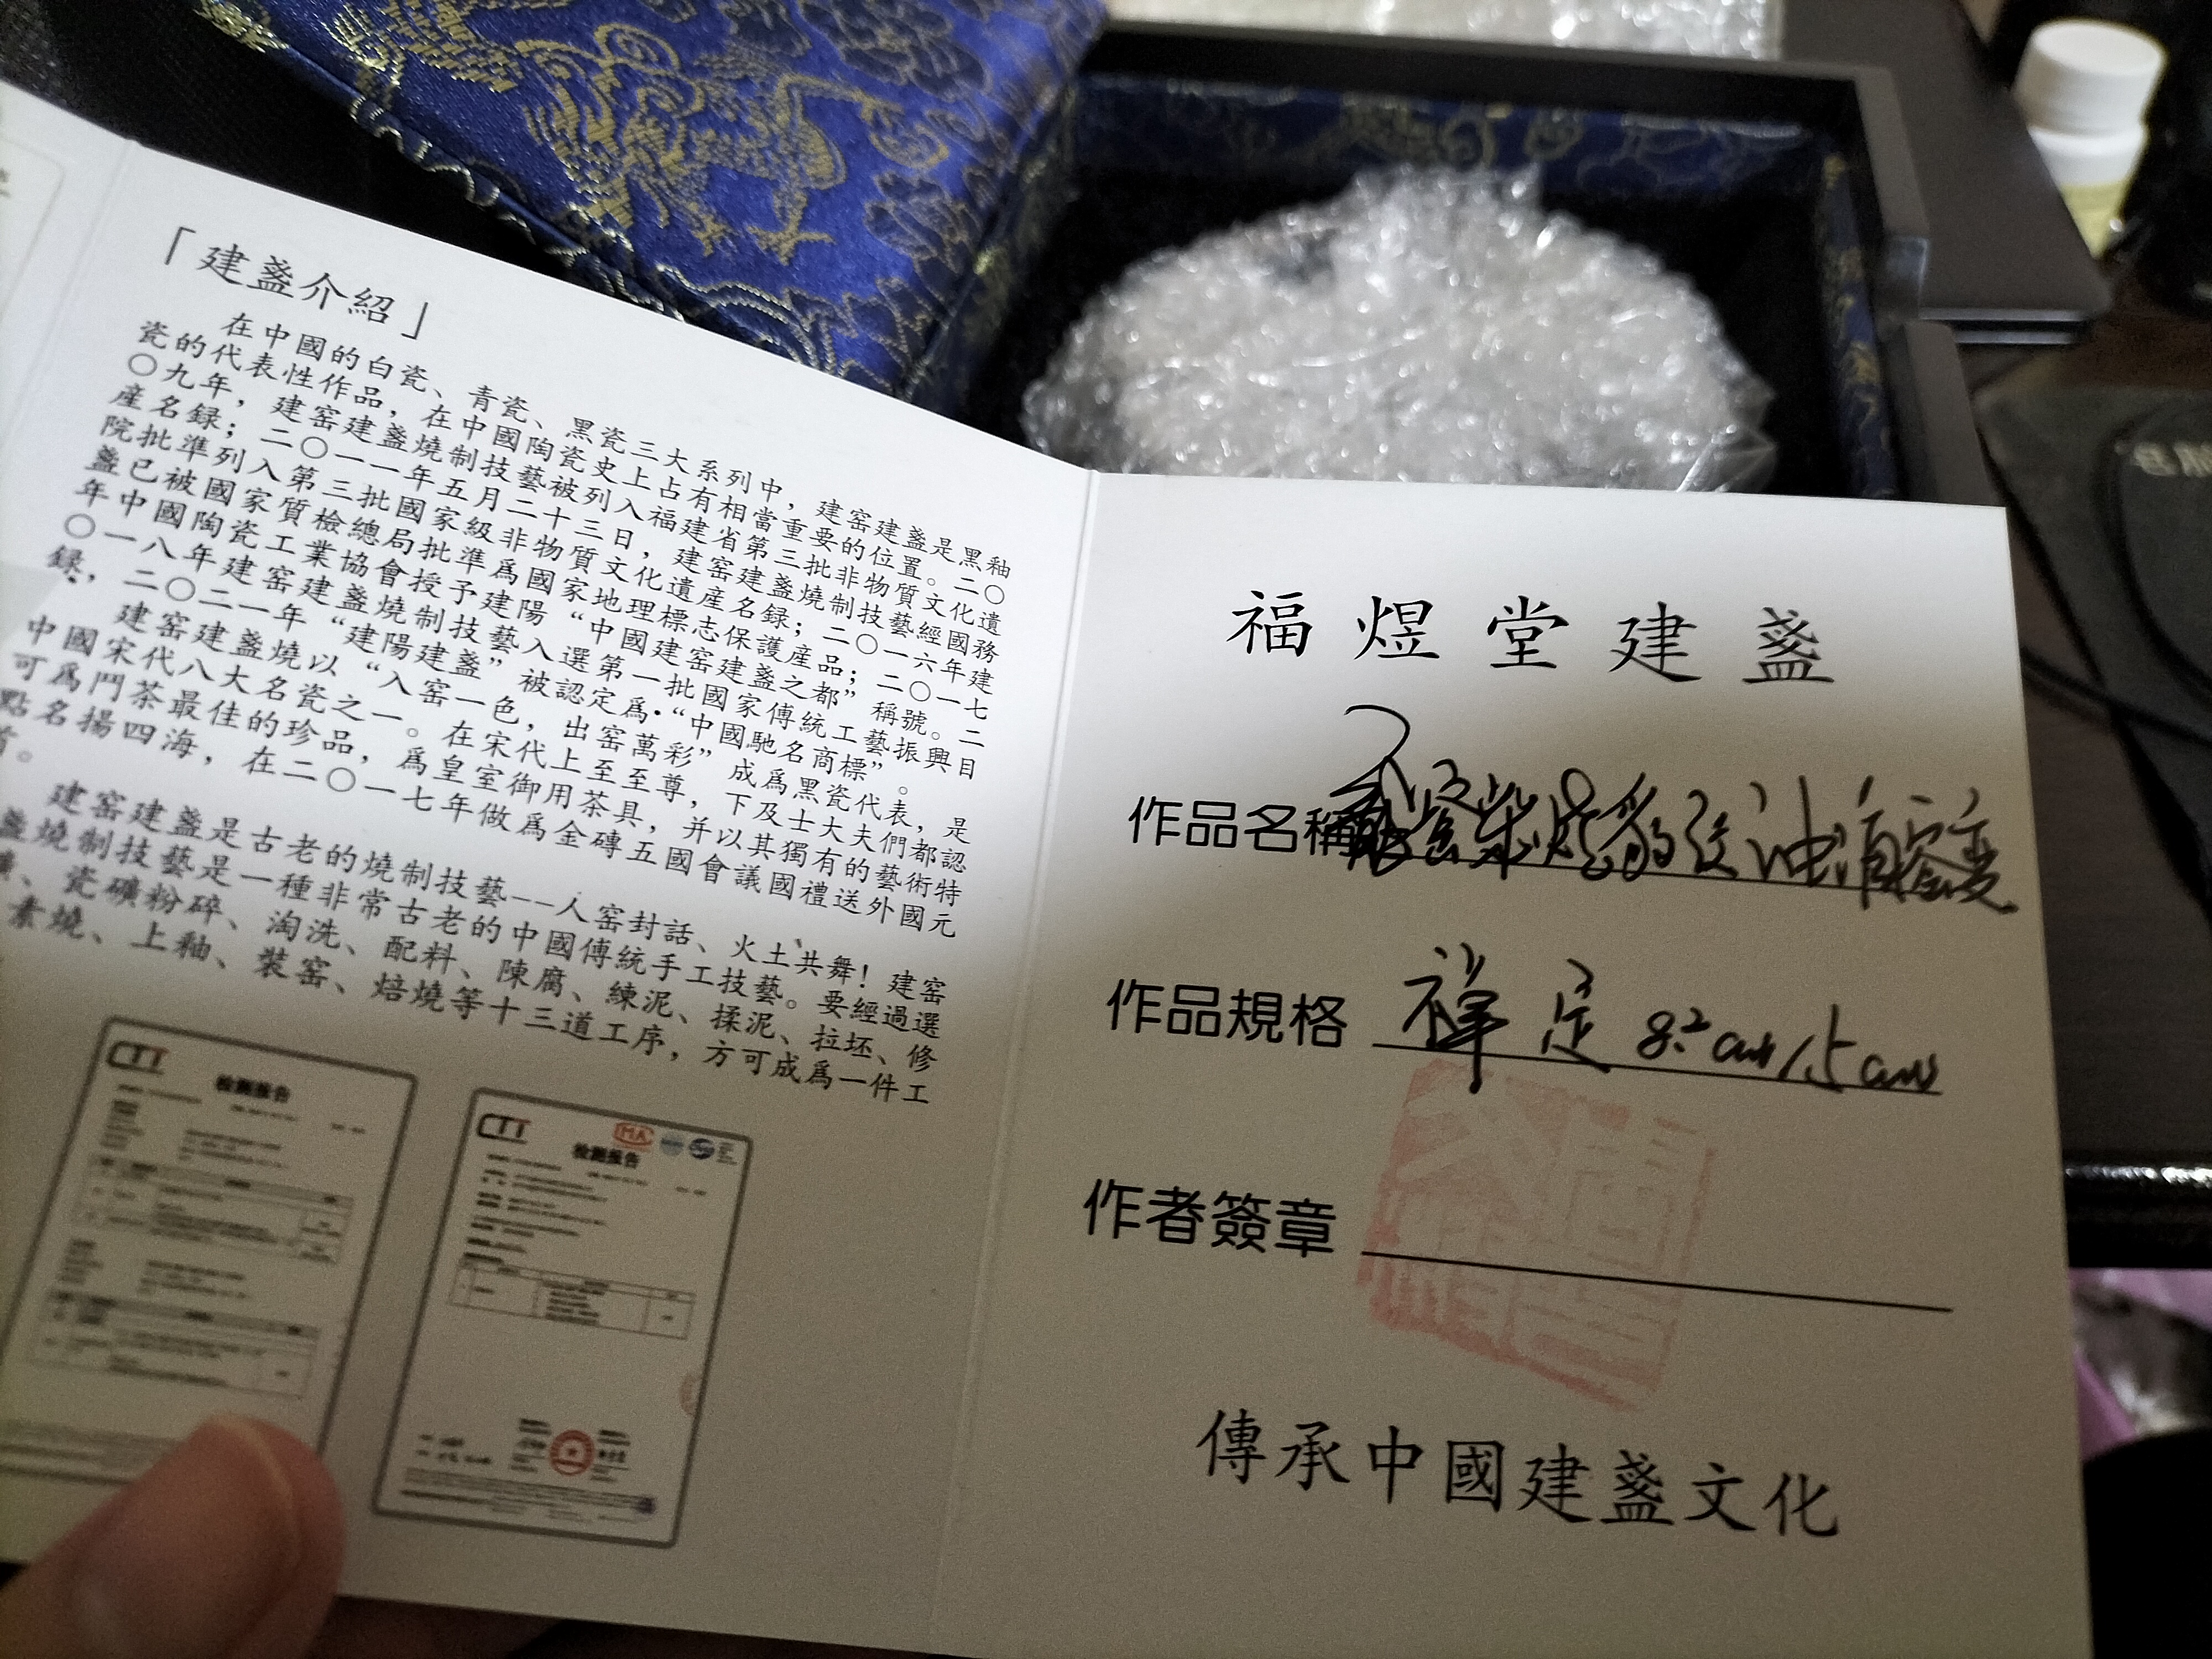 「建盞介紹」
在中國的白瓷、青瓷、黑瓷三大系列中，建窑建盞是黑釉
瓷的代表性作品，在中國陶瓷史上占有相當重要的位置。二〇
〇九年，建窑建盞燒制技藝被列入福建省第三批非物質文化遺
産名録；二〇一一年五月二十三日，建窑建盞燒制技藝經國務
院批準列入第三批國家級非物質文化遺産名録；二〇一六年建
盞已被國家質檢總局批準爲國家地理標志保護産品；二〇一七
年中國陶瓷工業協會授予建陽“中國建窑建盞之都”稱號。二
〇一八年建窑建盞燒制技藝入選第一批國家傳統工藝振興目
録，二〇二一年“建陽建盞”被認定爲“中國馳名商標”。
建窑建盞燒以“入窑一色，出窑萬彩”成爲黑瓷代表，是
中國宋代八大名瓷之一。在宋代上至至尊，下及士大夫們都認
可爲鬥茶最佳的珍品，爲皇室御用茶具，并以其獨有的藝術特
點名揚四海，在二〇一七年做爲金磚五國會議國禮送外國元
首。
建窑建盞是古老的燒制技藝——人窑封話、火土共舞！建窑
盞燒制技藝是一種非常古老的中國傳統手工技藝。要經過選
礦、瓷礦粉碎、淘洗、配料、陳腐、練泥、揉泥、拉坯、修
素燒、上釉、裝窑、焙燒等十三道工序，方可成爲一件工
CTT
检测报告
CTT
MA
检测报告
福煜堂建盞
作品名稱 窑柴烧豹纹油滴窑变
作品規格 禅定 8.2cm/5cm
作者簽章
傳承中國建盞文化